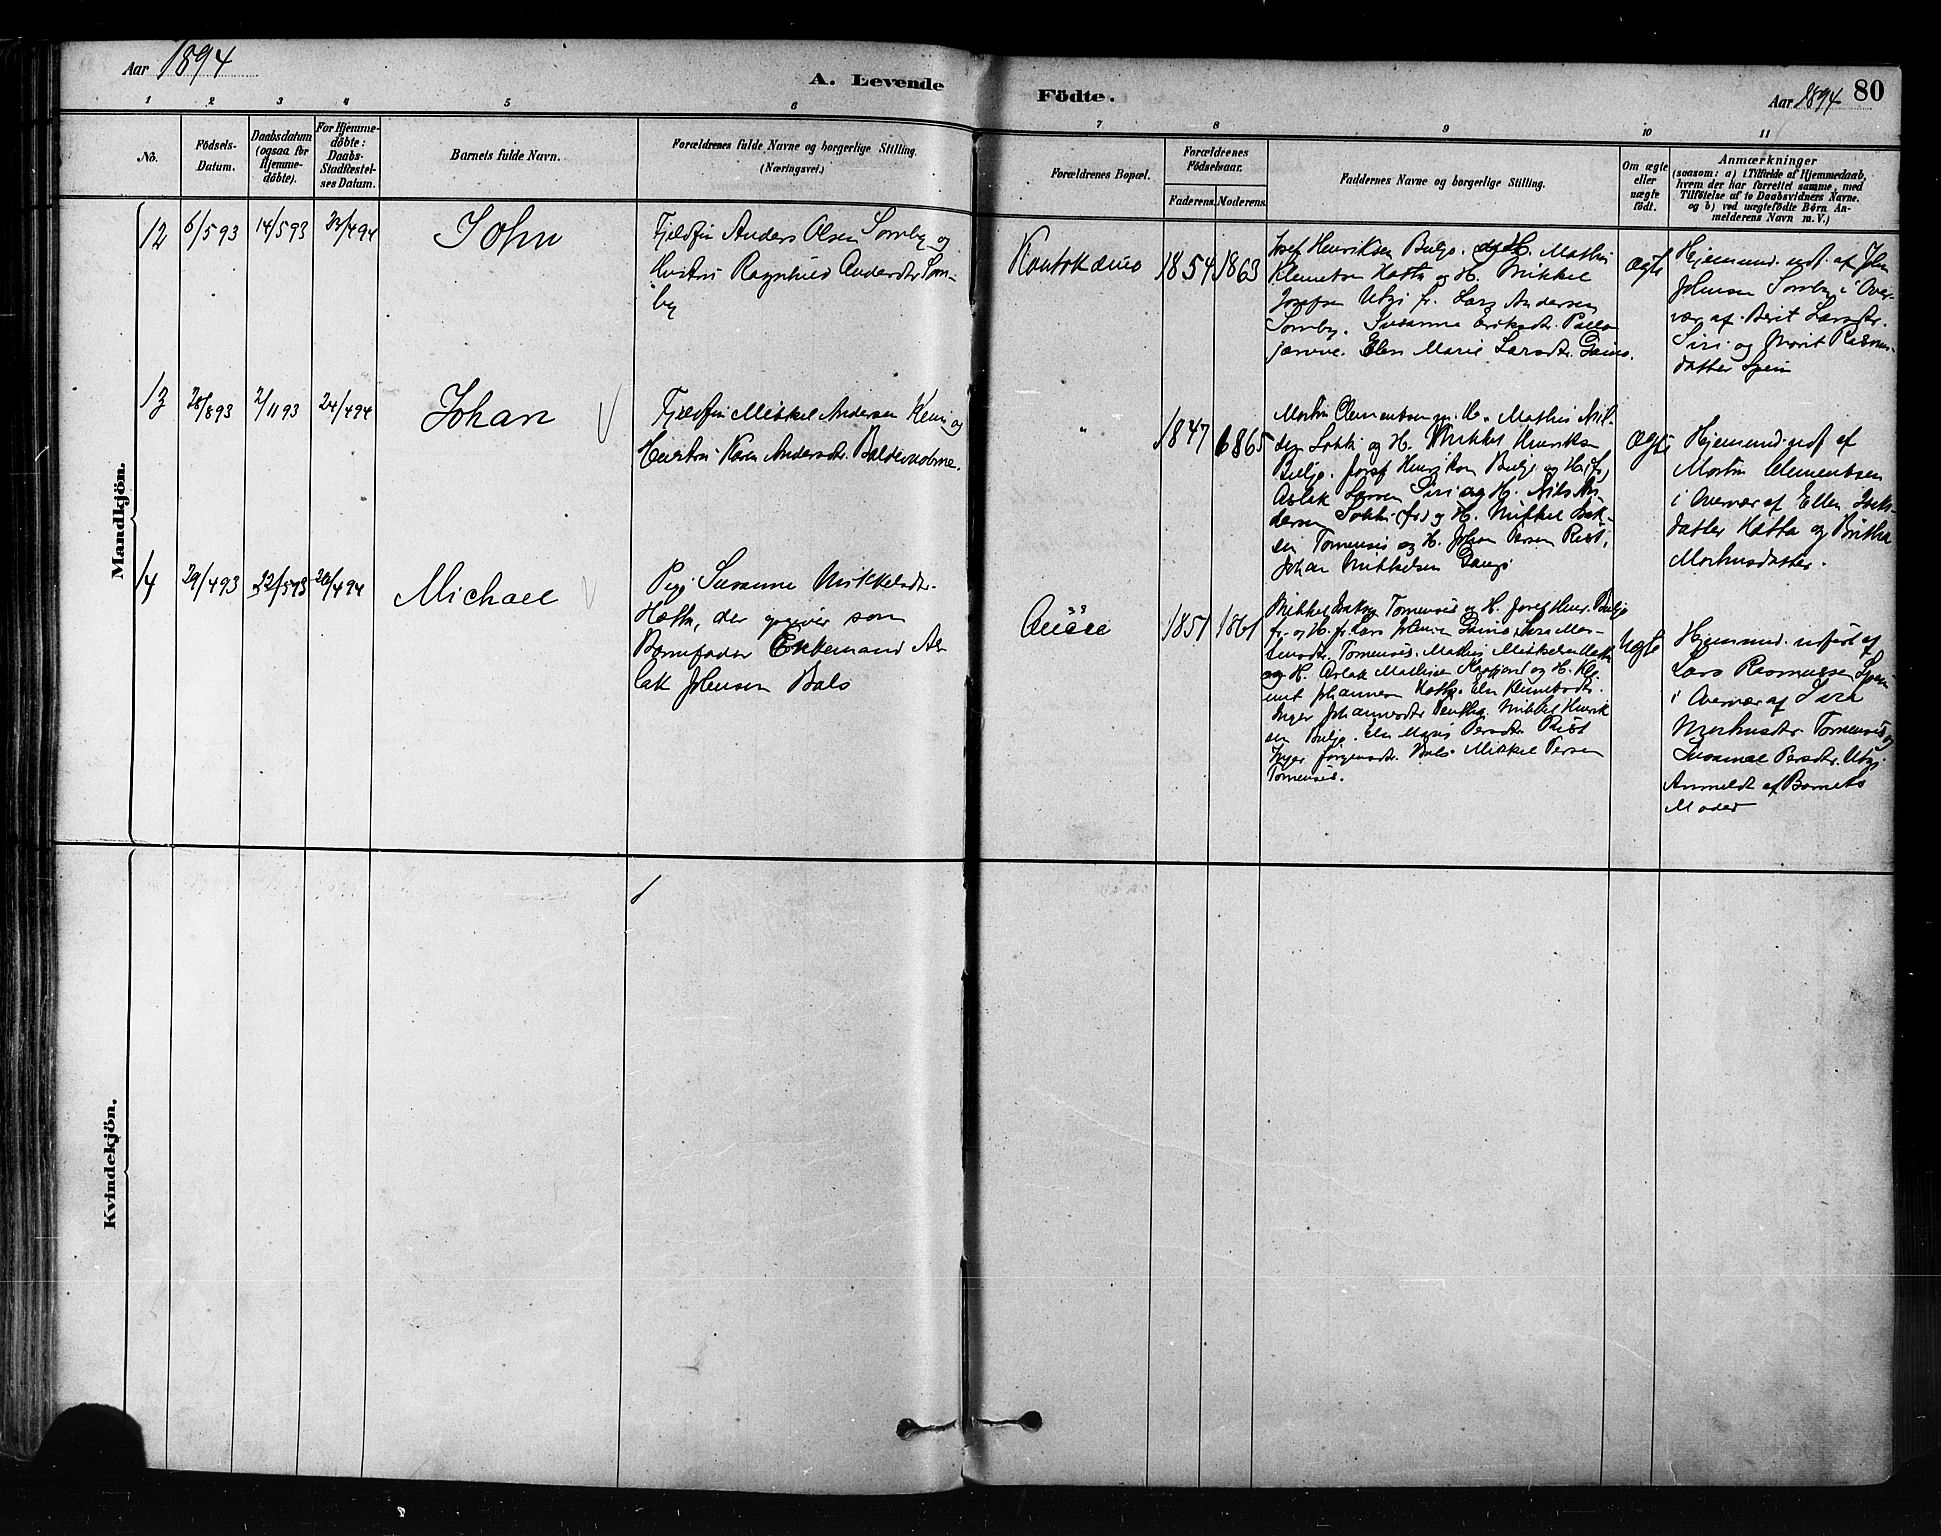 Aar 1894
A. Levende Födte.
Aar 1894 80
1 2 3 4 5 6 7 8 9 10 11
No.
Födsels-Datum.
Daabsdatum (ogsaa for Hjemme-döbte).
For Hjemme-döbte: Daabs-Stadfæstel-ses Datum.
Barnets fulde Navn.
Forældrenes fulde Navne og borgerlige Stilling.
(Næringsvei.)
Forældrenes Bopæl.
Forældrenes Födselsaar.
Faderens. Moderens.
Faddernes Navne og borgerlige Stilling.
Om ægte eller uægte födt.
Anmærkninger
(saasom: a) i Tilfælde af Hjemmedaab,
hvem der har forrettet samme, med
Tilföielse af to Daabsvidners Navne.
og b) ved uægtefödte Börn An-
melderens Navn m. V.)
Mandkjön.
12 6/593 14/593 /494 John
Fjeldfin Anders Olsen Somby og
Hustru Ragnhild Andersdtr Som-
by
Kautokeino 1854 1863
Josef Henriksen Buljo. Mathis
Klemetsen Hætta og H. Mikkel
Josefsen Utsi fr. Lars Andersen
Somby. Susanne Eriksdtr.
Elen Marie Larsdtr. Gaino.
Ægte
Hjemmed. udf. af John
Johnsen Somby i Over-
vær af Berit Larsdtr.
Siri og Marit Rasmus-
datter Spein
13 28/893 2/1193 24/494 Johan
Fjeldfin Mikkel Andersen Kemi og
Hustru Karen Andersdtr.
" 1847 1865
Morten Clemetsen m. H. Mathis Nil-
sen Lokki og H. Mikkel Henriks
Buljo. Josef Henriksen Buljo og H. fr.,
Aslak Larsen Siri og H. Nils An-
dersen Sokki (fr) og H. Mikkel Isak-
sen Tornensis og H. Johan Persen Rist,
Johan Mikkelsen
Ægte
Hjemmed. udf. af
Morten Clementsen
i Overvær af Ellen Isaks-
datter Hætta og Britha
Morthusdatter.
14 29/493 22/593 26/494 Michael
Pige Susanne Mikkelsdtr.
Hætta, der opgiver som
Barnefader Enkemand As-
lak Johnsen Bals
1851 1861
Mikkel Isaks. Tornensis og H. Josef Henr. Buljo
fr. og H. fr. Lars Johnsen Gaino. Sara Mor-
Tornensis. Mathis Mikkelsen Hætta
og H. Aslak Mathisen og H. Kle-
met Johannesen Hætta. Elen Klemetsdtr.
Inger Johannesdtr Mikkel Henrik
sen Buljo. Elen Maria Persdtr Rist
Inger Jörgensdtr. Bals Mikkel Persen
Tornensis.
Uægte
Hjemmed. udfört af
Lars Rasmussen Spein
i Overvær af Sara
Morthusdtr Tornensis og
Susanne Persdtr. Utsi.
Anmeldt af Barnets
Moder
Kvindekjön.